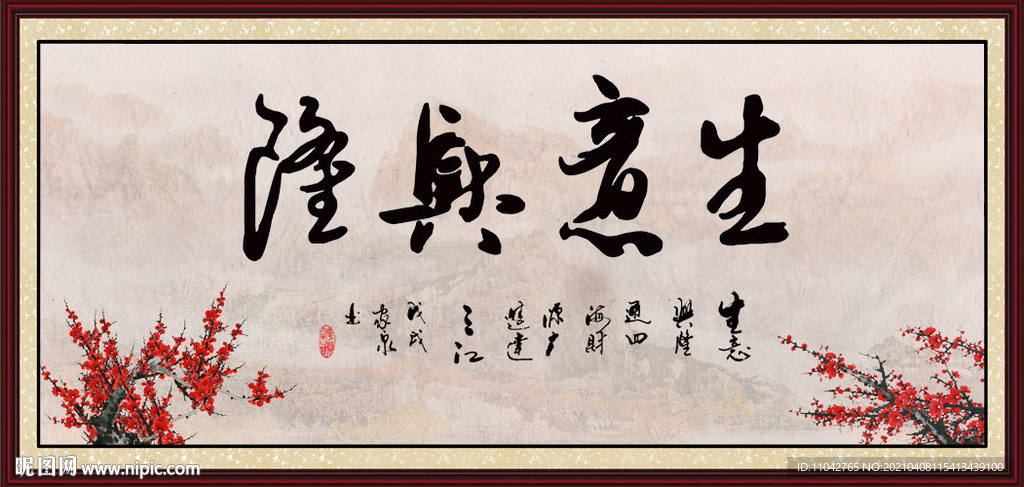 生意興隆
生意
興隆
通四
海財
源廣
達
三江
戊戌
家泉
书
昵图网 www.nipic.com
ID:11042765 NO:20210408115413439100